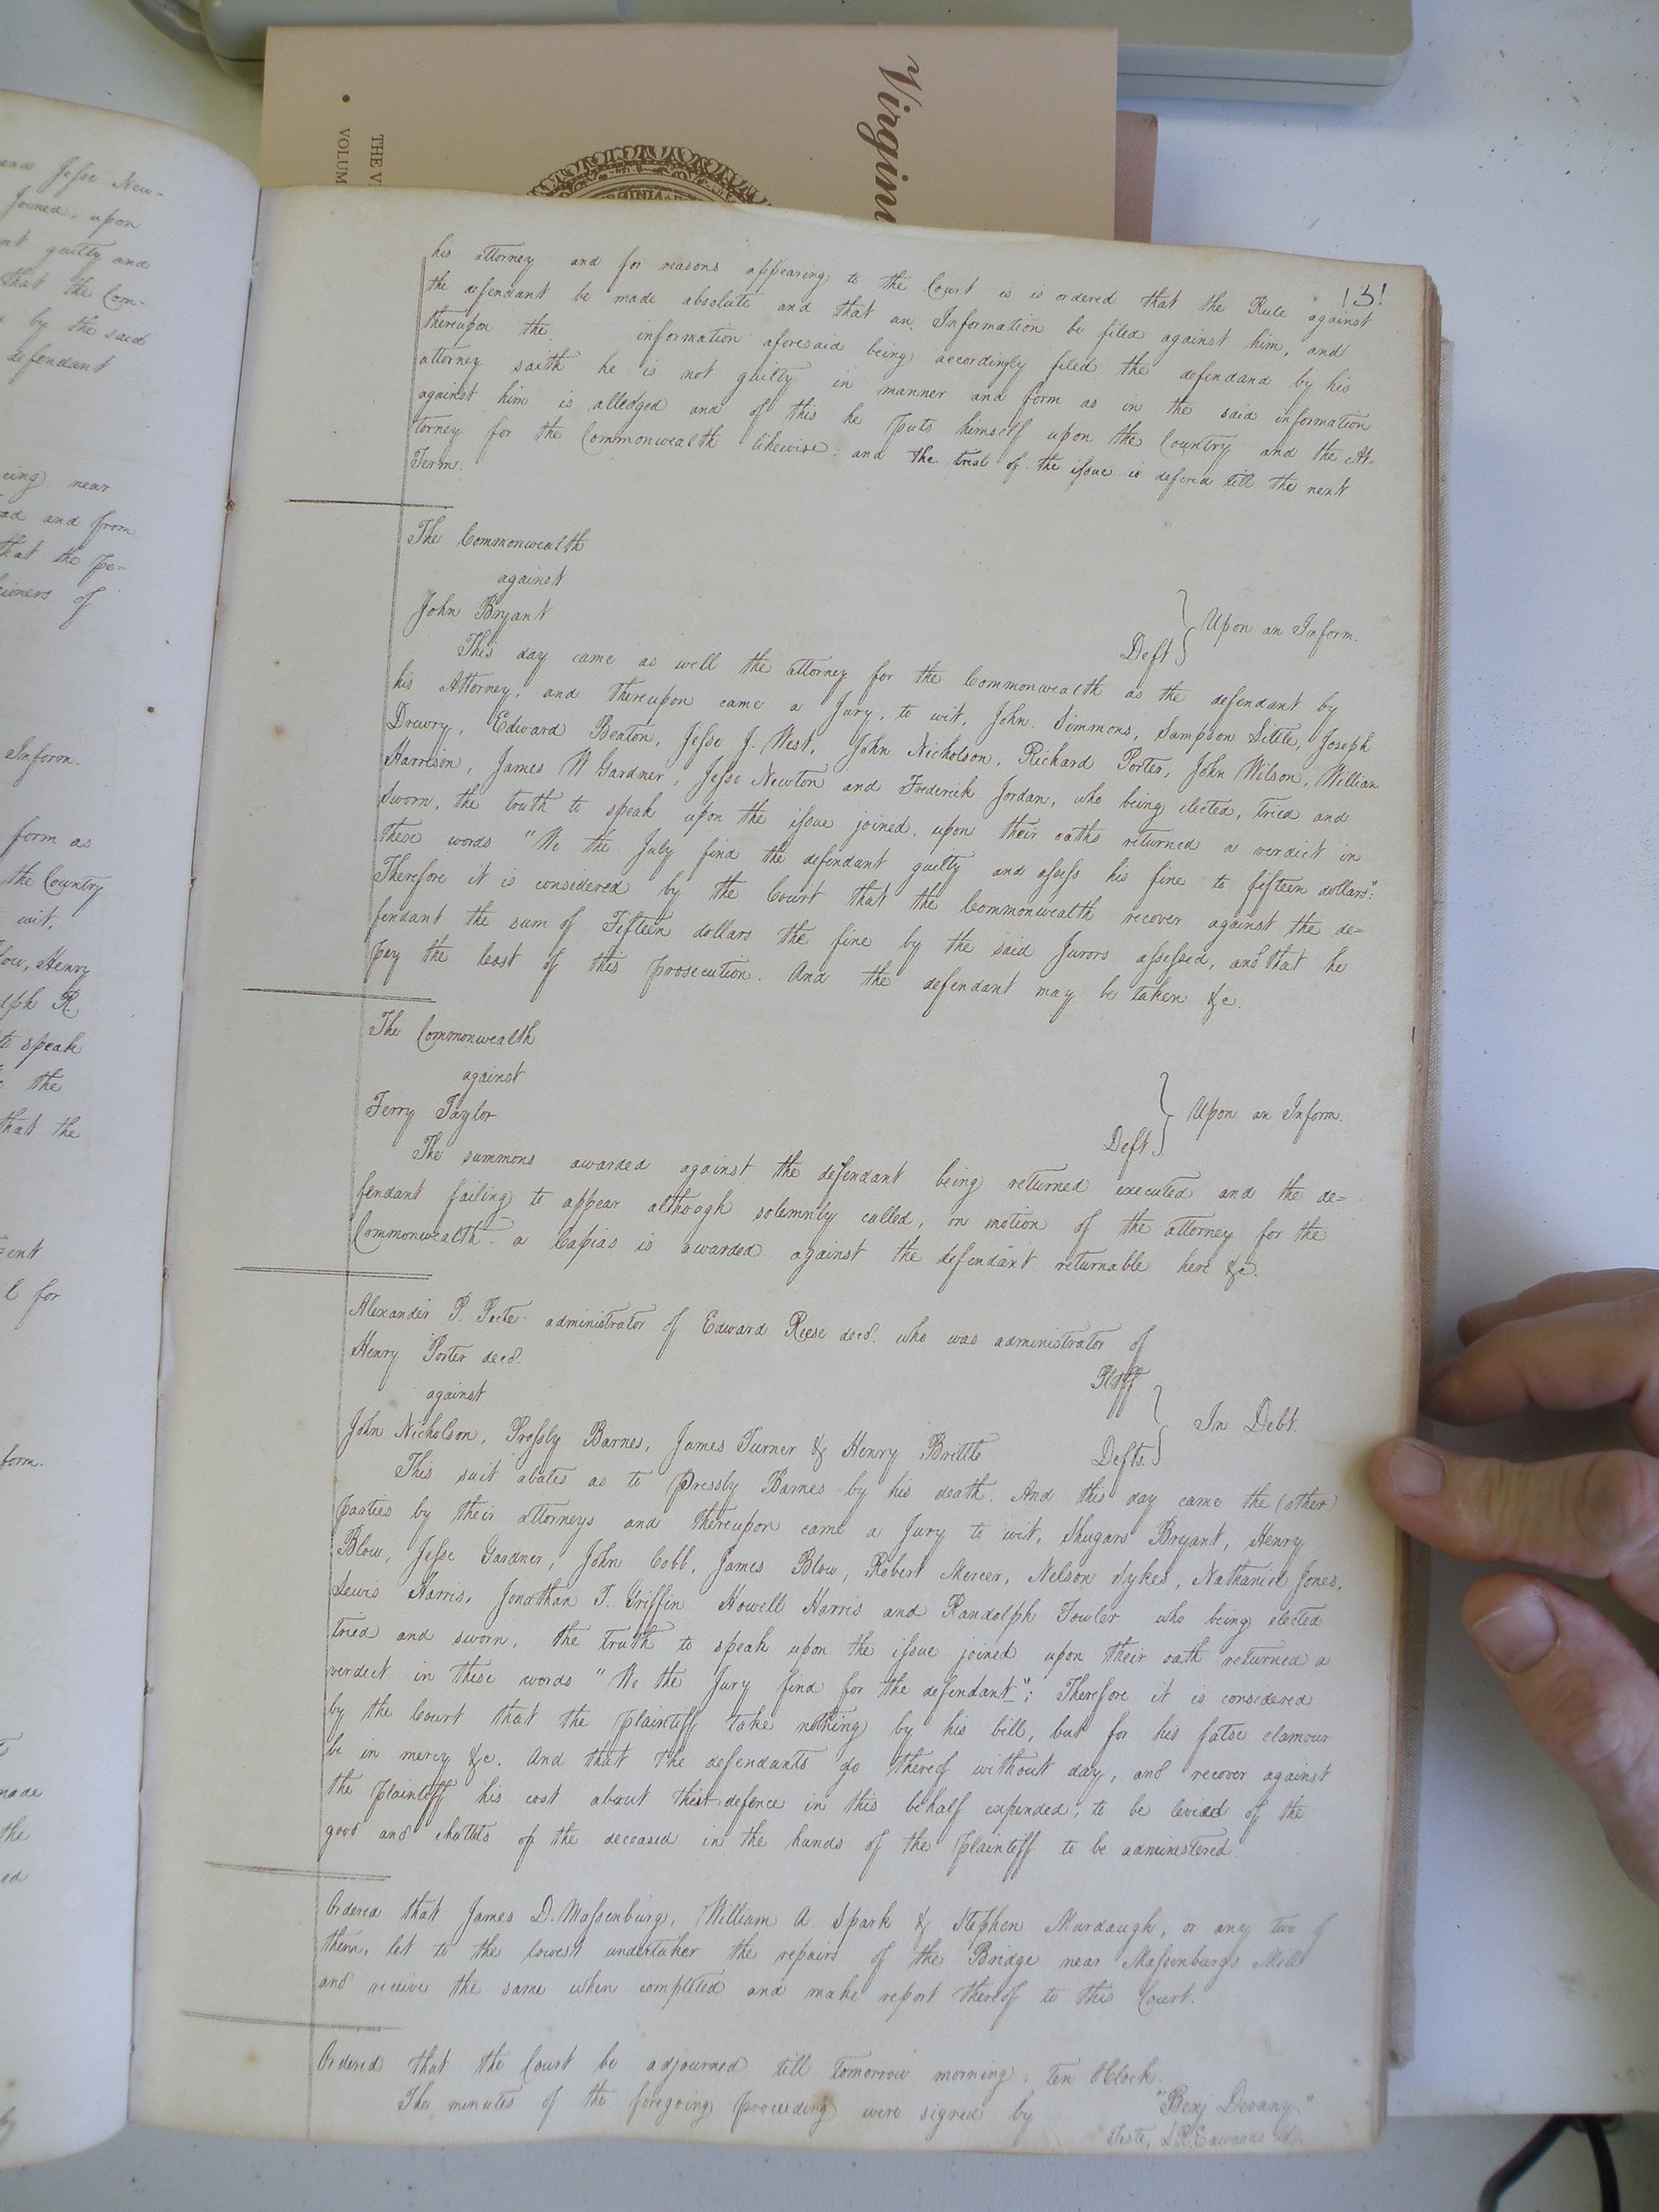 Virgin
THE V
VOLUM
and Jesse New-
joined, upon
guilty and
that the Com-
by the said
defendant
eing near
ad and from
that the pe-
ioners of
Inform.
form as
the Country
wit,
low, Henry
lph R.
to speak
the
that the
l for
form.
made
the
ed
131
his attorney and for reasons appearing to the Court is is ordered that the Rule against
the defendant be made absolute and that an Information be filed against him, and
thereupon the information aforesaid being accordingly filed the defendand by his
attorney saith he is not guilty in manner and form as in the said information
against him is alledged and of this he puts himself upon the Country and the At-
torney for the Commonwealth likewise: and the trial of the issue is deferd till the next
Term.
The Commonwealth
against
John Bryant Deft } Upon an Inform.
This day came as well the attorney for the Commonwealth as the defendant by
his Attorney, and thereupon came a Jury, to wit, John Simmons, Sampson Little, Joseph
Drewry, Edward Beaton, Jesse J. West, John Nicholson, Richard Porter, John Wilson, William
Harrison, James W Gardner, Jesse Newton and Frederick Jordan, who being elected, tried and
sworn, the truth to speak upon the issue joined, upon their oaths returned a verdict in
these words "We the July find the defendant guilty and assess his fine to fifteen dollars":
Therefore it is considered by the Court that the Commonwealth recover against the de=
fendant the sum of Fifteen dollars the fine by the said Jurors assessed, and that he
pay the Cost of this prosecution. And the defendant may be taken &c.
The Commonwealth
against
Ferry Taylor Deft } Upon an Inform.
The summons awarded against the defendant being returned executed and the de=
fendant failing to appear although solemnly called, on motion of the attorney for the
Commonwealth a Capias is awarded against the defendant returnable here &c.
Alexander P. Peete administrator of Edward Reese decd. who was administrator of
Henry Porter decd. Pltff
against } In Debt.
John Nicholson, Prossly Barnes, James Turner & Henry Brittle Defts.
This suit abates as to Pressly Barnes by his death. And this day came the (other)
parties by their attorneys and thereupon came a Jury to wit, Shugars Bryant, Henry
Blow, Jesse Gardner, John Cobb, James Blow, Robert Mercer, Nelson Sykes, Nathaniel Jones,
Lewis Harris, Jonathan T. Griffin Howell Harris and Randolph Fowler who being elected
tried and sworn, the truth to speak upon the issue joined upon their oath returned a
verdict in these words "We the Jury find for the defendant": Therefore it is considered
by the Court that the plaintiff take nothing by his bill, but for his false clamour
be in mercy &c. And that the defendants go thereof without day, and recover against
the plaintiff his cost about their defence in this behalf expended, to be levied of the
good and chattels of the deceased in the hands of the plaintiff to be administered.
Ordered that James D. Massenburg, William A. Spark & Stephen Murdaugh, or any two of
them, let to the lowest undertaker the repairs of the Bridge near Massenburgs Mill
and receive the same when completed and make report thereof to this Court.
Ordered that the Court be adjourned till tomorrow morning, ten OClock.
The minutes of the foregoing proceeding were signed by "Benj Devany."
Teste, L.R. Edwards